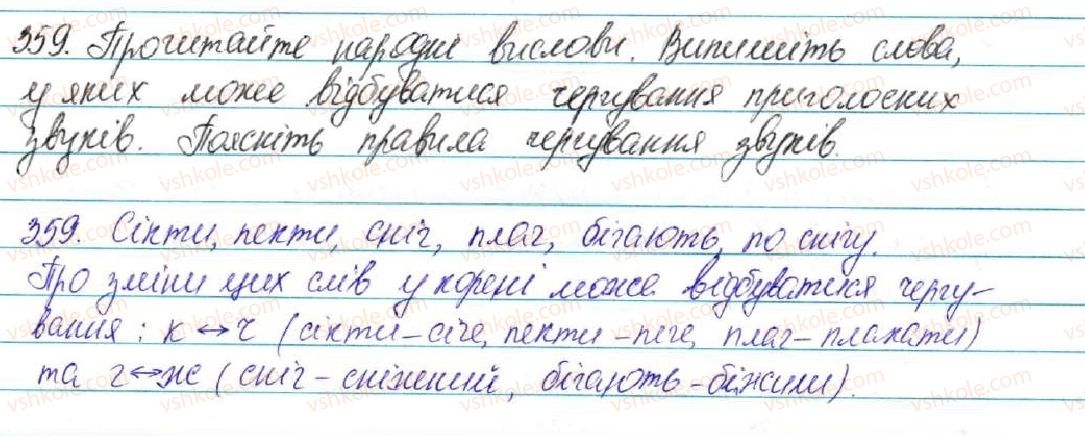 359. Прочитайте народні вислови. Випишіть слова,
у яких може відбуватися чергування приголосних
звуків. Поясніть правила чергування звуків.
359. Сікти, пекти, сніг, плач, бігають, по снігу.
Про зміни цих слів у корені може відбуватися чергу-
вання: к ↔ ч (сікти – січе, пекти – пече, плач – плакати)
та г ↔ ж (сніг – сніжний, бігають – біжими).